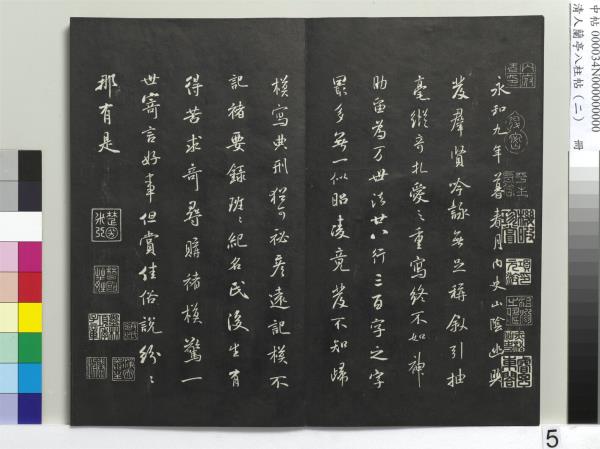 永和九年暮春月內史山陰幽興
發羣賢吟詠無足稱敘引抽
毫縱奇札愛之重寫終不如神
助留為萬世法廿八行三百字之字
最多無一似昭陵竟發不知歸
模寫典刑猶可祕彥遠記模不
記褚要錄班班紀名氏後生有
得苦求奇尋購褚模驚一
世寄言好事但賞佳俗說紛紛
那有是
中帖 000034N000000000
清人蘭亭八柱帖(二) 冊
5